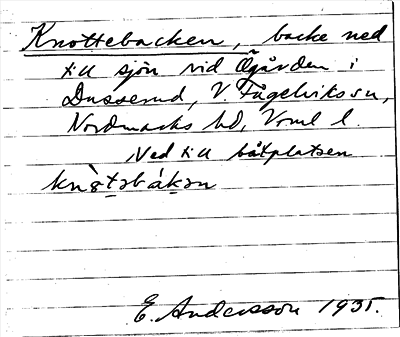 Knottebacken, backe ned
till sjön vid Ögården i
Dusserud, V. Fågelviks sn,
Nordmarks hd, Vrml l.
Ned till båtplatsen
E. Andersson 1935.